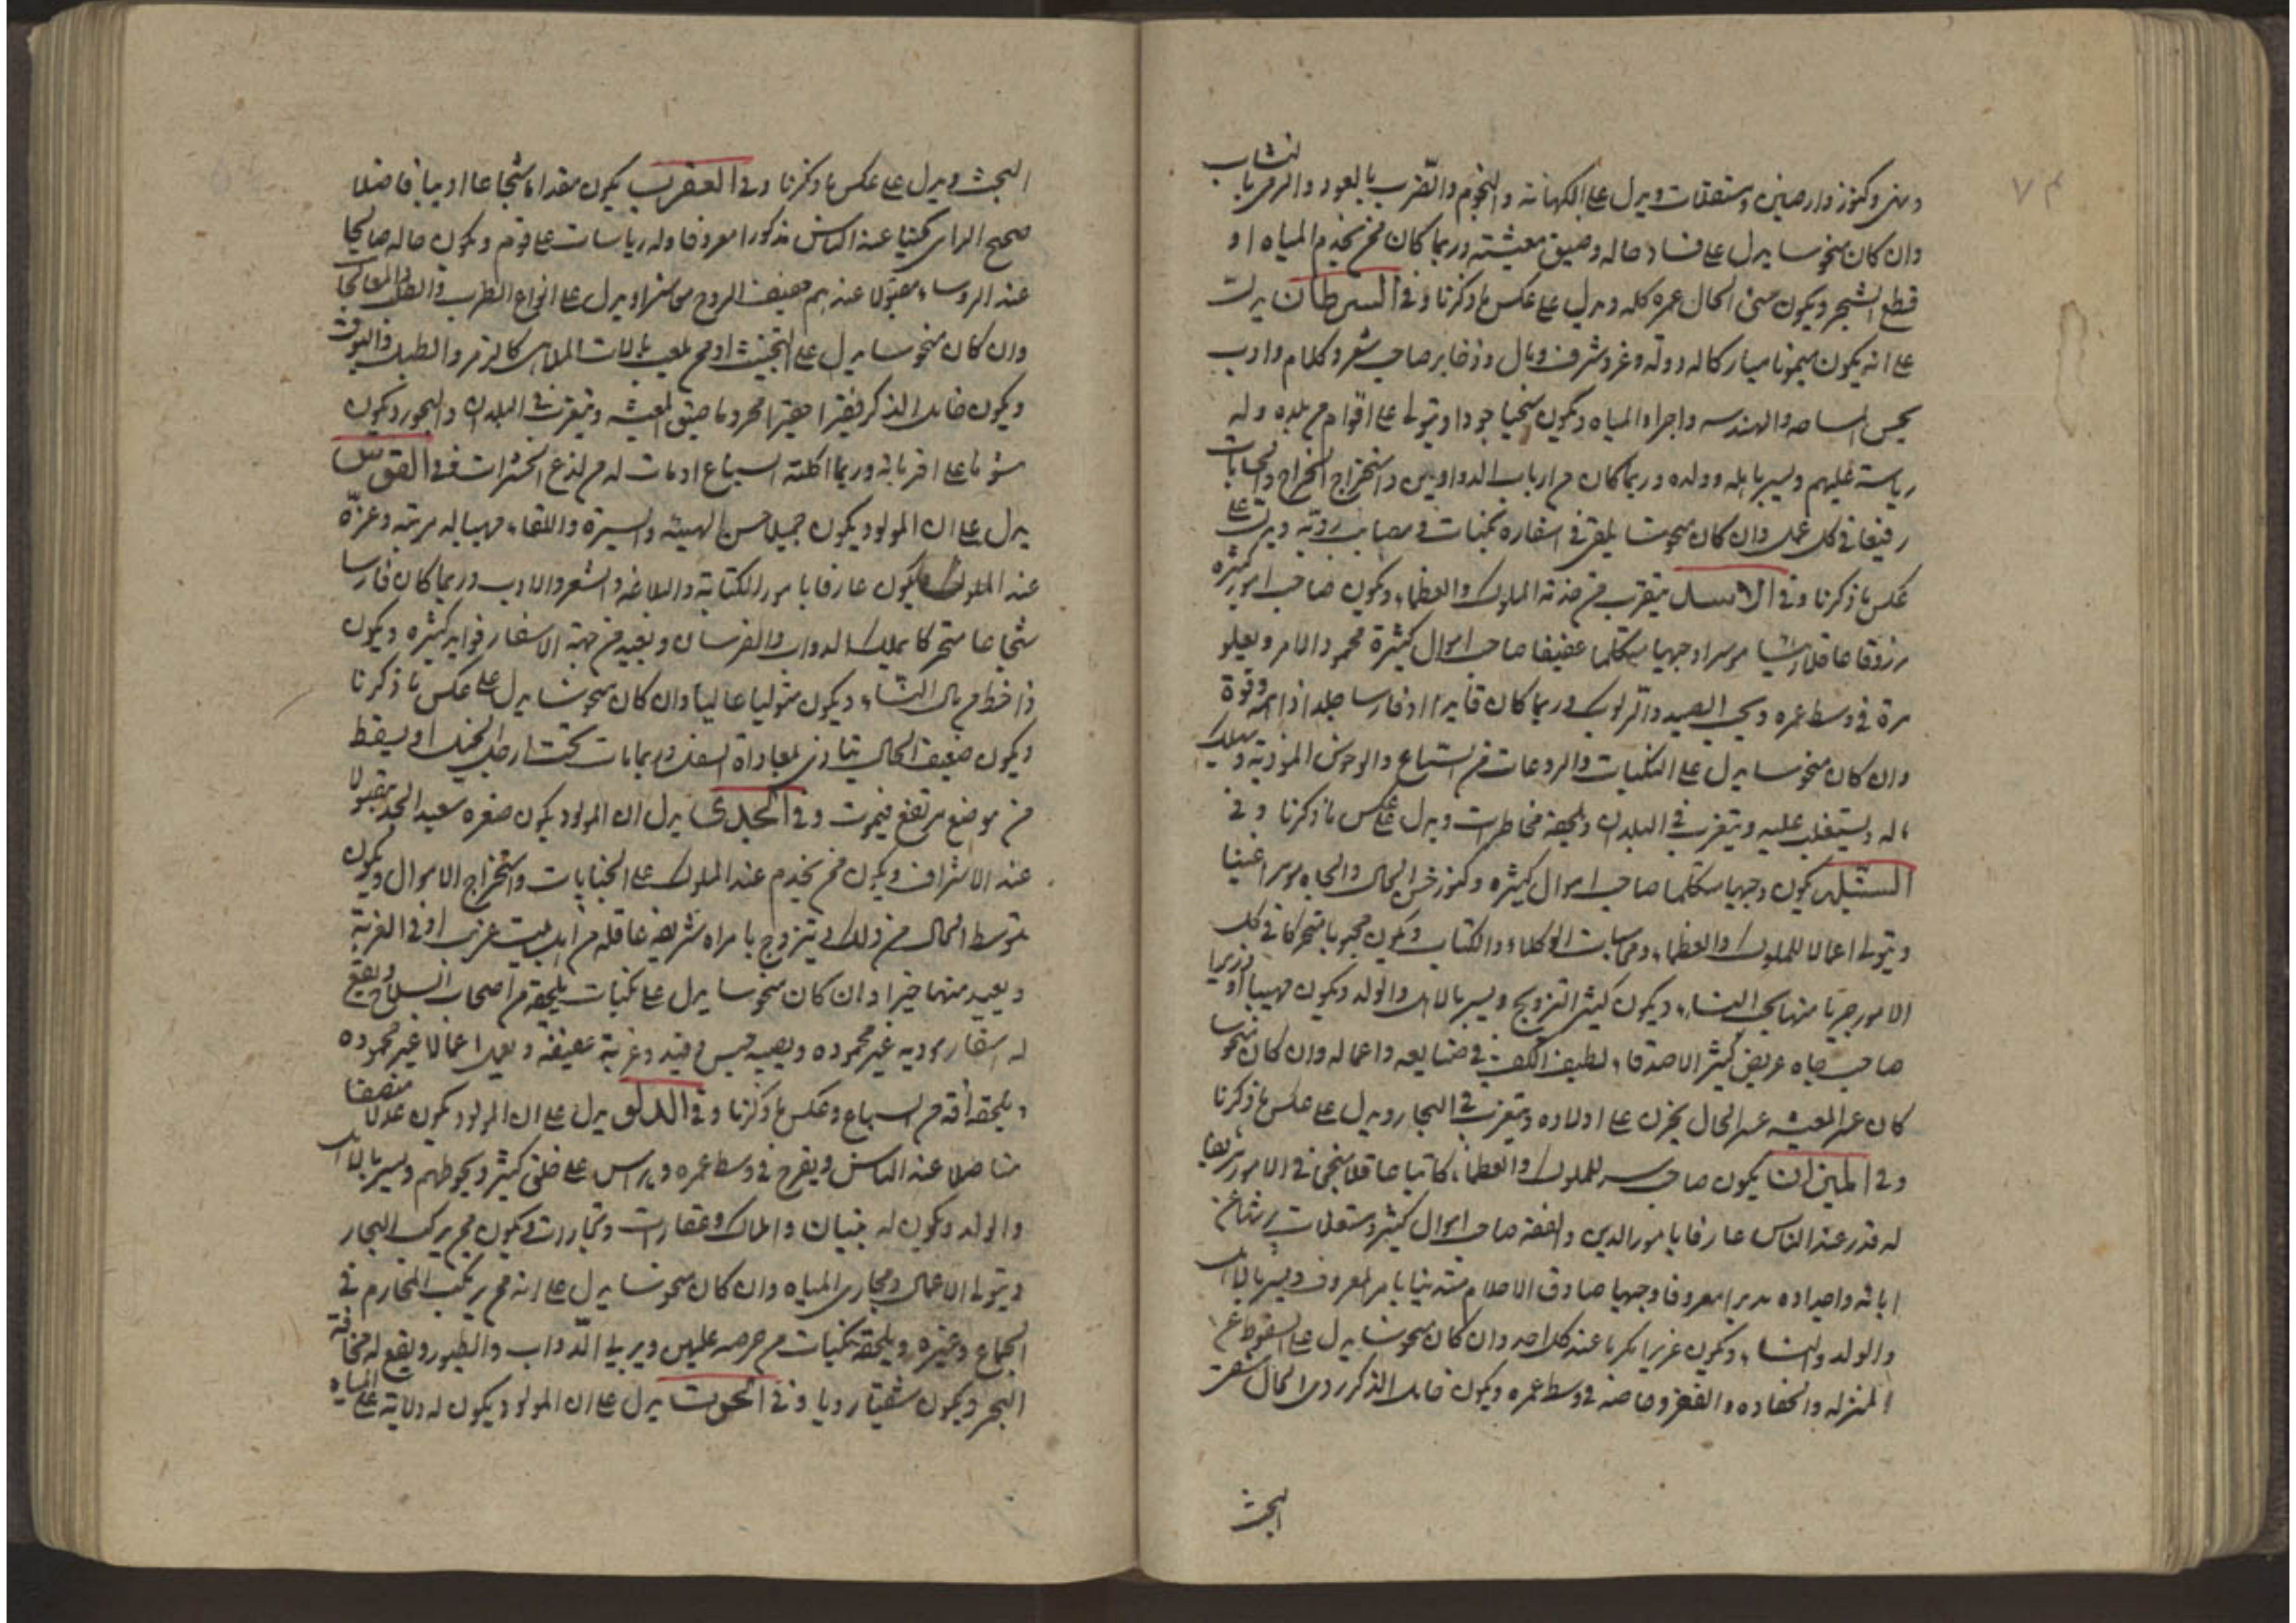 ٧٣
النشاب
ومنى وكنوز وارضين ومستغلات ويدل على الكهانه والنجوم والضرب بالعود والرمي با
وان كان منحوسا يدل على فساد حاله وضيق معيشته وربما كان ممن يخدم المياه او
قطع الشجر ويكون سىء الحال عمره كله ويدل على عكس ما ذكرنا وفي السرطان يدل
على انه يكون ميمونا مباركا له دولة وعز وشرف ومال وذخاير صاحب شعر وكلام وادب
يحب المساحه والهندسه واجراء المياه ويكون سخيا جوادا ويتولى على اقوام من بلده وله
رياسة عليهم ويسر باهله وولده وربما كان من ارباب الدواوين واستخراج الخراج والجبايات
رفيعا في كل عمل وان كان منحوسا يلقى في اسفاره نكبات ومصايب رديه ويدل على
عكس ما ذكرنا وفي الاسد يتقرب من خدمة الملوك والعظماء ويكون صاحب امور كثيره
مرزوقا عاقلا موسرا وجيها متكلما عفيفا صاحب اموال كثيرة محمود الامر ويعلو
مرة في وسط عمره ويحب الصيد والركوب وربما كان قايدا او فارسا جلدا ذا همه وقوة
وان كان منحوسا يدل على النكبات والروعات من السباع والوحوش الموذية ويهلك
ماله ويستغلب عليه ويتغرب في البلدان ويلحقه مخاطرات ويدل على عكس ما ذكرنا وفي
السنبله يكون وجيها متكلما صاحب اموال كثيره وكنوز حسن الحال والجاه موسرا غنيا
ويتولى اعمالا للملوك والعظماء ومحاسبات الوكلاء والكتاب ويكون محبوبا متحركا في كل
الامور حريا منها يحب النساء ويكون كثير التزويج ويسر بالاهل والولد ويكون مهيبا او وزيرا
صاحب جاه عريض كثير الاصدقاء لطيف الكف في صنايعه واعماله وان كان منحوسا
كان عسر المعيشه عسر الحال يحزن على اولاده ويتغرب في البحار ويدل على عكس ما ذكرنا
وفي الميزان يكون صاحب سر للملوك والعظماء كاتبا عاقلا سخي في الامور شريفا
له قدر عند الناس عارفا بامور الدين والفقه صاحب اموال كثير ومستغلات يرثها من
ابائه واجداده مدبرا معروفا وجيها صادق الاحلام متدينا يامر بالمعروف ويسر بالاهل
والولد والنساء ويكون عزيزا مكرما عند كل احد وان كان منحوسا يدل على السقوط عن
المنزله والفقر وخاصه في وسط عمره ويكون خامل الذكر ردى الحال
البحث
البحث ويدل على عكس ما ذكرنا وفي العقرب يكون مقداما شجاعا اديبا فاضلا
صحيح الراي مكينا عند الناس مذكورا معروفا وله رياسات على قوم ويكون حاله صالحا
عند الروساء مقبولا عندهم خفيف الروح محاضرا ويدل على انواع الطرب والطب والمعالجا
وان كان منحوسا يدل على التخنيث او ممن يلعب بالات الملاهى كالزمر والطبل والبوق
ويكون خامل الذكر فقيرا حقيرا محروما ضيق المعيشه ويتغرب في البلدان والبحور ويكون
مشوما على اقربائه وربما اكلته السباع او مات له من لذع الحشرات وفي القوس
يدل على ان المولود يكون جميلا حسن الهيئه والسيرة واللقاء مهيبا له مرتبه وعزة
عند الملوك ويكون عارفا بامور الكتابة والبلاغه والشعر والادب وربما كان فارسا
شجاعا متحركا يملك الدواب والفرسان ويفيد من جهة الاسفار فوايد كثيره ويكون
ذا حظ من مال النساء ويكون متوليا عاليا وان كان منحوسا يدل على عكس ما ذكرنا
ويكون ضعيف الحال يتاذى بمعاداة السفل وربما مات تحت ارجل الخيل او يسقط
من موضع مرتفع فيموت وفي الجدى يدل ان المولود يكون صغره سعيد الجد مقبولا
عند الاشراف ويكون ممن يخدم عند الملوك على الجنايات واستخراج الاموال ويكون
متوسط الحال من ذلك ويتزوج بامراه شريفه عاقله من اهل بيت غريب او في الغربة
ويفيد منهما خيرا وان كان منحوسا يدل على نكبات يلحقه من اصحاب السلاح ويقع
له اسفار موديه غير محموده ويصيبه حبس وقيد وغربة عنيفه ويعمل اعمالا غير محموده
ويلحقه افه من السباع وعكس ما ذكرنا وفي الدلو يدل على ان المولود يكون عدلا منصفا
فاضلا عند الناس ويفرح في وسط عمره ويراس على خلق كثير ويحوطهم ويسر بالاهل
والولد ويكون له بنيان واملاك وعقارات وتجارات ويكون ممن يركب البحار
ويتولى الاعمال ومجارى المياه وان كان منحوسا يدل على انه ممن يركب المحارم في
الجماع وغيره ويلحقه نكبات من حرصه عليهن ويربى الدواب والطيور ويقع له مخافة
البحر ويكون شقيا رديا وفي الحوت يدل على ان المولود يكون له ولاية على المياه